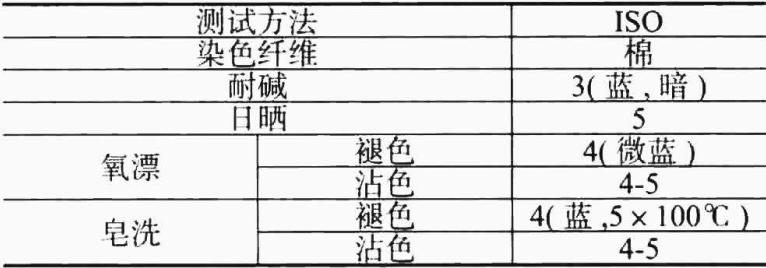 测试方法 ISO
染色纤维 棉
耐碱 3(蓝,暗)
日晒 5
氧漂 褪色 4(微蓝)
沾色 4-5
皂洗 褪色 4(蓝,5×100℃)
沾色 4-5